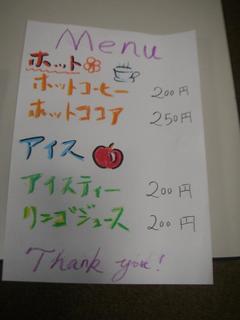 Menu
ホット
ホットコーヒー 200円
ホットココア 250円
アイス
アイスティー 200円
リンゴジュース 200円
Thank you!